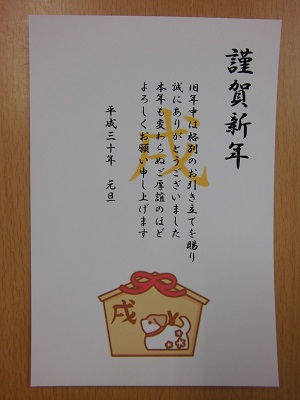 謹賀新年
戌
旧年中は格別のお引き立てを賜り
誠にありがとうございました
本年も変わらぬご厚誼のほど
よろしくお願い申し上げます
平成三十年　元旦
戌